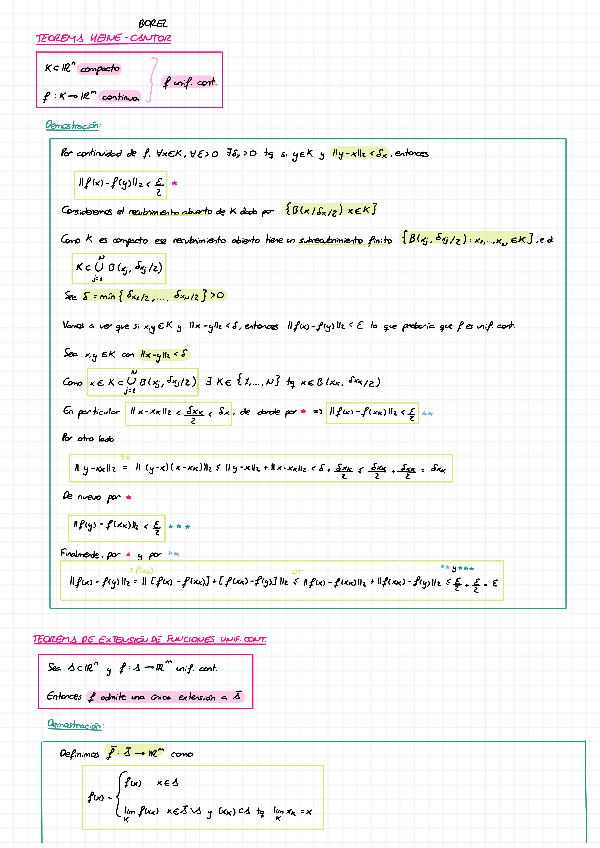 BOREL
TEOREMA HEINE-CANTOR
K ⊂ ℝⁿ compacto
f : K → ℝᵐ continua
f unif. cont.
Demostración:
Por continuidad de f, ∀x∈K, ∀ε>0 ∃δₓ>0 tq si y∈K y ||y-x||₂ < δₓ, entonces
||f(x)-f(y)||₂ < ε/2 *
Consideremos el recubrimiento abierto de K dado por {B(x, δₓ/2) x∈K}
Como K es compacto ese recubrimiento abierto tiene un subrecubrimiento finito {B(xⱼ, δxⱼ/2) : x₁,...,x_N ∈ K}, e.d.
K ⊂ ⋃_{j=1}^{N} B(xⱼ, δxⱼ/2)
Sea δ = min{δx₁/2, ..., δx_N/2} > 0
Vamos a ver que si x,y ∈ K y ||x-y||₂ < δ, entonces ||f(x)-f(y)||₂ < ε lo que probaría que f es unif. cont.
Sea x,y ∈ K con ||x-y||₂ < δ
Como x ∈ K ⊂ ⋃_{j=1}^{N} B(xⱼ, δxⱼ/2) ∃ K ∈ {1,...,N} tq x ∈ B(x_K, δx_K/2)
En particular ||x-x_K||₂ < δx_K/2 < δx, de donde por * => ||f(x)-f(x_K)||₂ < ε/2 **
Por otro lado
||y-x_K||₂ = ||(y-x)(x-x_K)||₂ ≤ ||y-x||₂ + ||x-x_K||₂ < δ + δx_K/2 ≤ δx_K/2 + δx_K/2 = δx_K
De nuevo por *
||f(y)-f(x_K)||₂ < ε/2 ***
Finalmente, por * y por **
±f(x_K) DT ** y ***
||f(x)-f(y)||₂ = ||[f(x)-f(x_K)]+[f(x_K)-f(y)]||₂ ≤ ||f(x)-f(x_K)||₂ + ||f(x_K)-f(y)||₂ ≤ ε/2 + ε/2 = ε
TEOREMA DE EXTENSIÓN DE FUNCIONES UNIF. CONT.
Sea S ⊂ ℝⁿ y f : S → ℝᵐ unif. cont.
Entonces f admite una única extensión a S̄
Demostración:
Definimos f̄ : S̄ → ℝᵐ como
f(x) = { f(x) x∈S
lim_K f(x_K) x∈S̄\S y (x_K)⊂S tq lim_K x_K = x